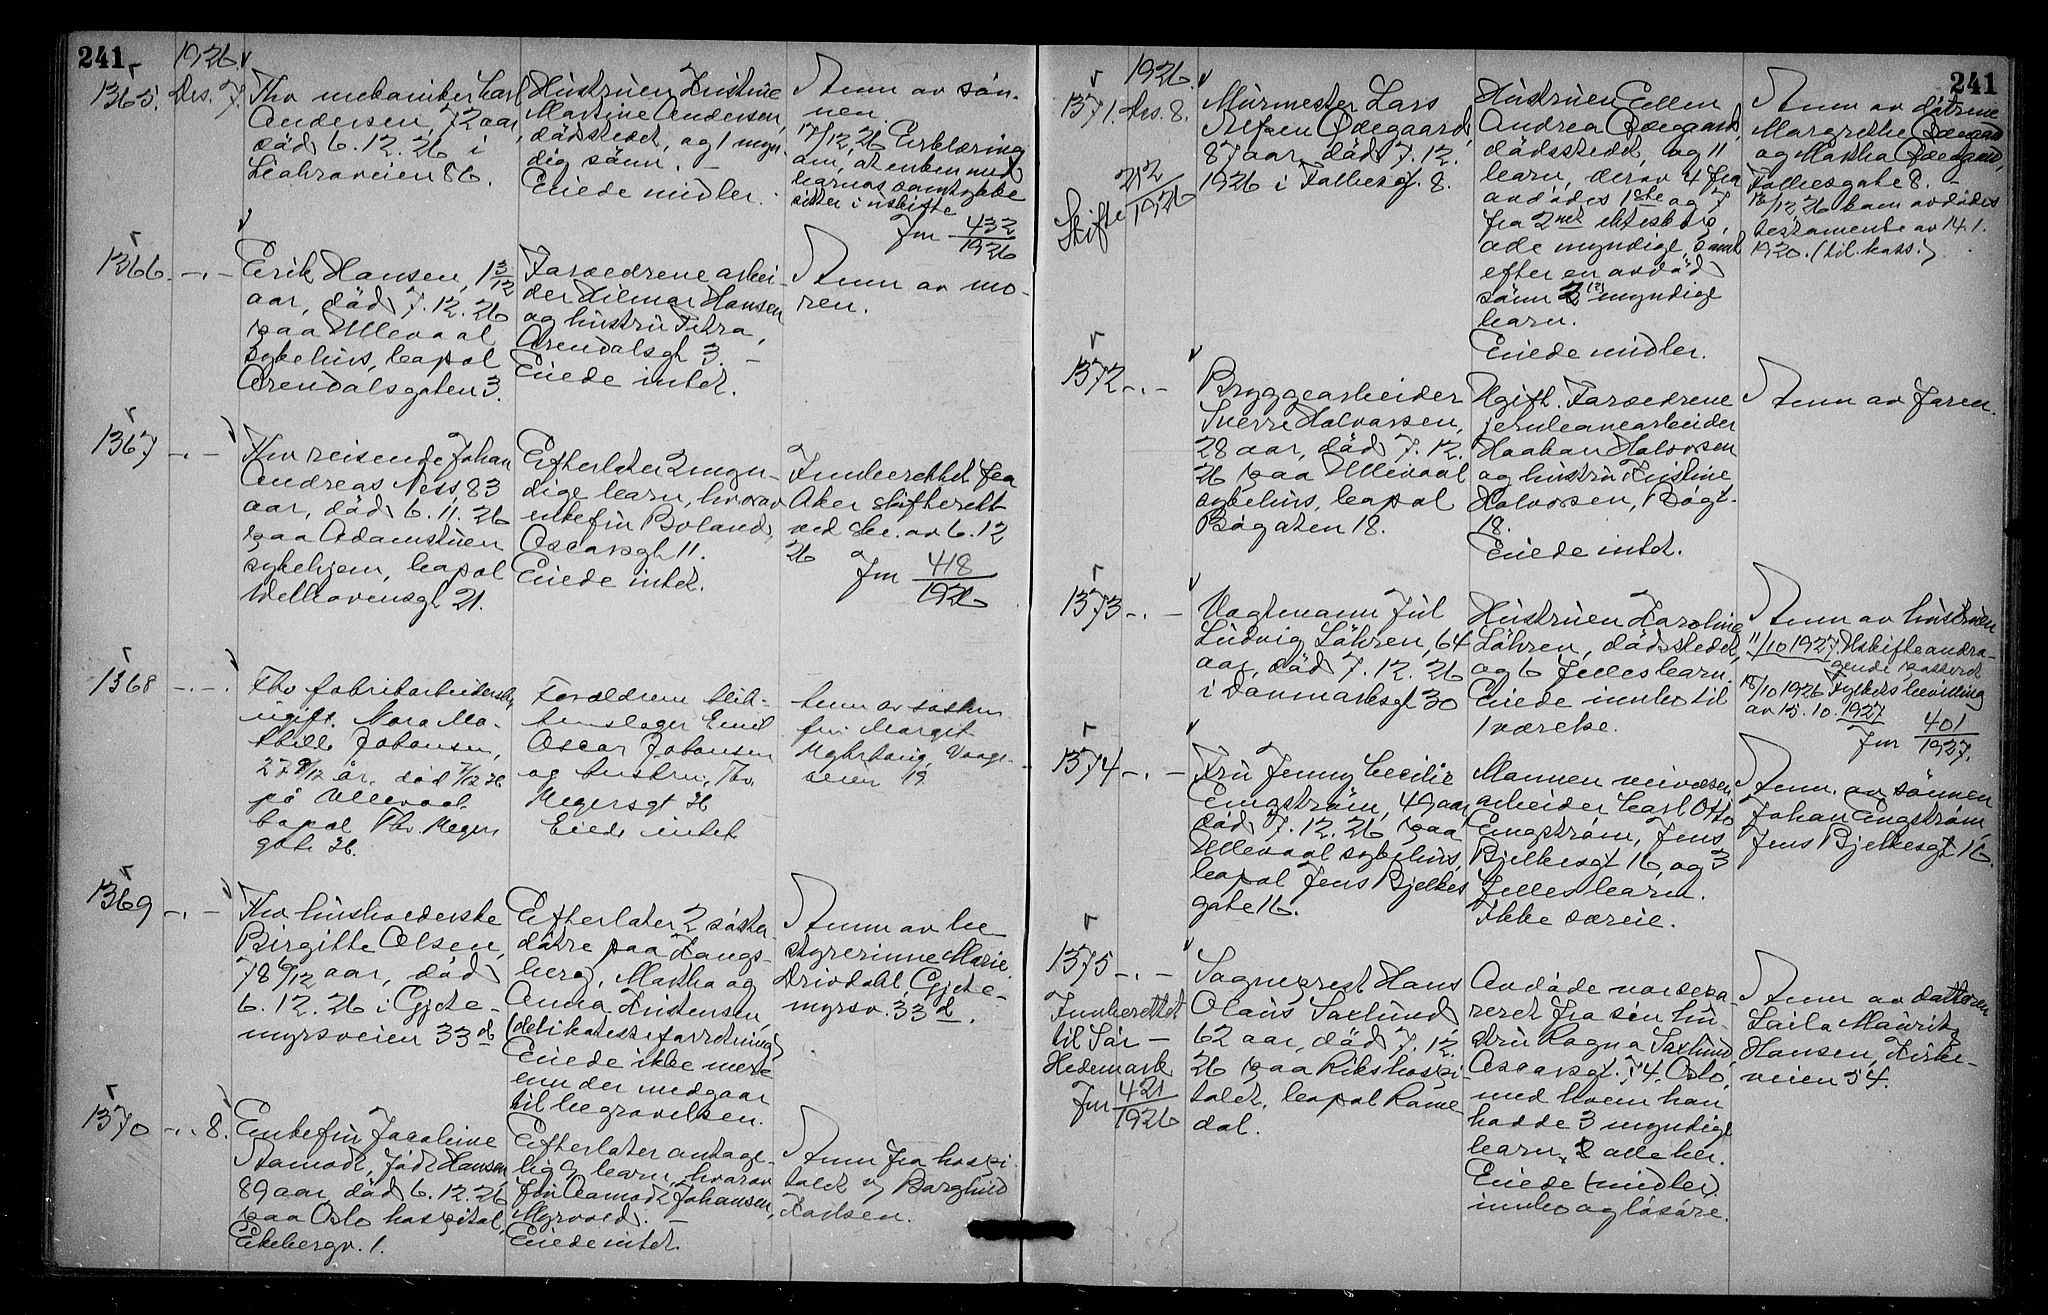 241
1926.
1365. Des. 7.
Fhv mekaniker Carl
Andersen, 72 aar,
død 6.12.26 i
Liabroveien 86.
Hustruen Kristine
Martine Andersen,
dødsstedet, og 1 myn-
dig sønn. -
Eiede midler.
Anm av søn-
nen.
17/12.26 Erklæring
om, at enken med
barnas samtykke
sitter i uskifte
Jnr 432
1926
1366. -.-
Erik Hansen, 1 3/12
aar, død 7.12.26
paa Ullevaal
sykehus, bopæl
Arendalsgaten 3.
Forældrene arbei-
der Hilmar Hansen
og hustru Petra,
Arendalsgt 3. -
Eiede intet.
Anm av mo-
ren.
1367 -.-
Fhv reisende Johan
Andreas Ness, 83
aar, død 6.11.26
paa Adamstuen
sykehjem, bopæl
Welhavensgt 21.
Efterlater 2 myn-
dige barn, hvorav
enkefru Boland,
Oscarsgt 11.
Eiede intet.
Innberettet fra
Aker skifterett
ved skr. av 6.12
26 Jnr 418
1926
1368 -.-.
Fhv fabrikarbeiderske,
ugift. Nora Ma-
thilde Johansen,
27 9/12 år, død 7/12 26
på Ullevaal.
bopæl Thv Meyers
gate 26.
Forældrene blik-
kenslager Emil
Oscar Johansen
og hustru, Thv.
Meyersgt 26
Eiede intet
Anm av søsteren
fru Margit
19
1369 -.-
Fhv husholderske
Birgitte Olsen,
78 6/12 aar, død
6.12.26 i Gjete-
myrsveien 33 d
Efterlater 2 søster-
døtre paa Kongs-
berg, Martha og
Anna Kristensen,
(delikatesseforretning)
Eiede ikke mere
enn der medgaar
til begravelsen.
Anm av be-
styrerinne Marie
Drivdahl, Gjete-
myrsv. 33 d.
1370 -.- 8.
Enkefru Jacobine
Aamodt, født Hansen,
89 aar, død 6.12.26
paa Oslo hospital,
Ekebergv. 1.
Efterlater antage-
lig barn, hvorav
fru Aamodt Johansen,
Myrvold. -
Eiede intet.
Anm fra hospi-
talet v/ Borghild
Karlsen.
241
1926.
1371. Des. 8.
Skifte 212
1926
Murmester Lars
Nilsen Ødegaard,
87 aar, død 7.12.
1926 i Falbesgt. 8.
Hustruen Ellen
Andrea Ødegaard,
dødsstedet, og 11
barn, derav 4 fra
avdødes 1ste og 7
fra 2net ekteskap,
alle myndige, samt
efter en avdød
sønn 2 myndige
barn.
Eiede midler.
Anm av døtrene
Margrethe Ødegaard
og Martha Ødegaard,
Falbesgate 8. -
/12 26 kom avdødes
testamente av 14.1.
1920. (til kass.)
1372 -.-
Bryggearbeider
Sverre Halvorsen,
28 aar, død 7.12.
26 paa Ullevaal
sykehus, bopæl
Bøgaten 18.
Ugift. Forældrene
jernbanearbeider
Haakon Halvorsen
og hustru Kristine
Halvorsen, Bøgt.
18.
Eiede intet.
Anm av faren.
1373 -.-
Vagtmann Jul
Ludvig Løhren, 64
aar, død 7.12.26
i Danmarksgt 30
Hustruen Karoline
Løhren, dødsstedet,
og 6 fellesbarn.
Eiede innbo til
1 værelse.
Anm av hustruen
11/10 1927. Uskifteandra-
gende passeret
18/10 1926 Fylkets bevilling
av 15.10.1927
Jnr 401
1927.
1374 -.-
Fru Jenny Cecilie
Engstrøm, 49 aar
død 7.12.26 paa
Ullevaal sykehus,
bopæl Jens Bjelkes
gate 16.
Mannen veivæsen
arbeider Carl Otto
Engstrøm, Jens
Bjelkesgt 16, og 3
fellesbarn.
Ikke særeie.
Anm. av sønnen
Johan Engstrøm,
Jens Bjelkesgt 16.
1375 -.-
Innberettet
til Sør-
Hedemark
Jnr 421
1926
Sogneprest Hans
Olaus Saxlund
62 aar, død 7.12.
26 paa Rikshospi-
talet. bopæl Rome
dal.
Avdøde var sepa-
reret fra sin hu-
stru Ragna Saxlund,
Oscarsgt. 74, Oslo,
med hvem han
hadde 3 myndige
barn, alle her.
Eiede (midler)
innbo og løsøre.
Anm av datteren
Laila Mauritz
Hansen, Kirke-
veien 54.